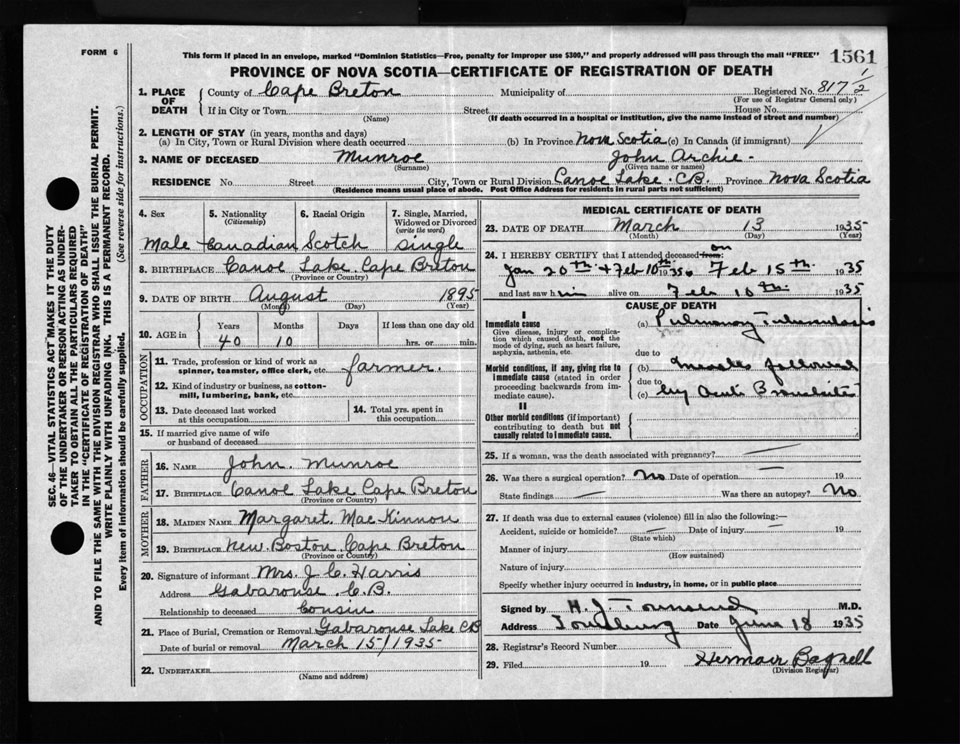 FORM 6
This form if placed in an envelope, marked "Dominion Statistics—Free, penalty for improper use $300," and properly addressed will pass through the mail "FREE"
1561
PROVINCE OF NOVA SCOTIA—CERTIFICATE OF REGISTRATION OF DEATH
1. PLACE OF DEATH
County of Cape Breton Municipality of Registered No. 817 1/2
(For use of Registrar General only)
If in City or Town Street House No.
(Name) (If death occurred in a hospital or institution, give the name instead of street and number)
2. LENGTH OF STAY (in years, months and days)
(a) In City, Town or Rural Division where death occurred (b) In Province Nova Scotia (c) In Canada (if immigrant)
3. NAME OF DECEASED Munroe John Archie -
(Surname) (Given name or names)
RESIDENCE No. Street City, Town or Rural Division Canoe Lake. C.B. Province Nova Scotia
(Residence means usual place of abode. Post Office Address for residents in rural parts not sufficient)
4. Sex
Male
5. Nationality
(Citizenship)
Canadian
6. Racial Origin
Scotch
7. Single, Married, Widowed or Divorced
(write the word)
Single
8. BIRTHPLACE Canoe Lake. Cape Breton
(Province or Country)
9. DATE OF BIRTH August 1895
(Month) (Year)
10. AGE in
Years Months Days If less than one day old
40 10 hrs. or min.
OCCUPATION
11. Trade, profession or kind of work as spinner, teamster, office clerk, etc. farmer.
12. Kind of industry or business, as cotton-mill, lumbering, bank, etc.
13. Date deceased last worked at this occupation
14. Total yrs. spent in this occupation
15. If married give name of wife or husband of deceased
FATHER
16. NAME John. Munroe
17. BIRTHPLACE Canoe Lake Cape Breton
(Province or Country)
MOTHER
18. MAIDEN NAME Margaret. MacKinnon
19. BIRTHPLACE New. Boston. Cape Breton
(Province or Country)
20. Signature of informant Mrs. J. C. Harris
Address Gabarouse C.B.
Relationship to deceased Cousin
21. Place of Burial, Cremation or Removal Gabarouse Lake CB
Date of burial or removal March 15/1935-
22. UNDERTAKER
(Name and address)
MEDICAL CERTIFICATE OF DEATH
23. DATE OF DEATH March 13 1935
(Month) (Day) (Year)
24. I HEREBY CERTIFY that I attended deceased from: on
Jan 20th + Feb 10th 1935 Feb 15th 1935
and last saw him alive on Feb 10th 1935
CAUSE OF DEATH
I
Immediate cause
Give disease, injury or complication which caused death, not the mode of dying, such as heart failure, asphyxia, asthenia, etc.
(a) Pulmonary Tuberculosis
due to
Morbid conditions, if any, giving rise to immediate cause (stated in order proceeding backwards from immediate cause).
(b) Measles followed
due to
(c) by Acute Bronchitis
II
Other morbid conditions (if important) contributing to death but not causally related to immediate cause.
25. If a woman, was the death associated with pregnancy?
26. Was there a surgical operation? No Date of operation 19
State findings Was there an autopsy? No
27. If death was due to external causes (violence) fill in also the following:
Accident, suicide or homicide? Date of injury 19
(State which)
Manner of injury
(How sustained)
Nature of injury
Specify whether injury occurred in industry, in home, or in public place
Signed by H. J. Townsend M.D.
Address Louisburg Date June 18 1935
28. Registrar's Record Number
29. Filed 19 Bagnell
(Division Registrar)
SEC. 46—VITAL STATISTICS ACT MAKES IT THE DUTY
OF THE UNDERTAKER OR PERSON ACTING AS UNDER-
TAKER TO OBTAIN ALL THE PARTICULARS REQUIRED
IN THE "CERTIFICATE OF REGISTRATION OF DEATH"
AND TO FILE THE SAME WITH THE DIVISION REGISTRAR WHO SHALL ISSUE THE BURIAL PERMIT.
WRITE PLAINLY WITH UNFADING INK. THIS IS A PERMANENT RECORD.
Every item of information should be carefully supplied. (See reverse side for instructions.)